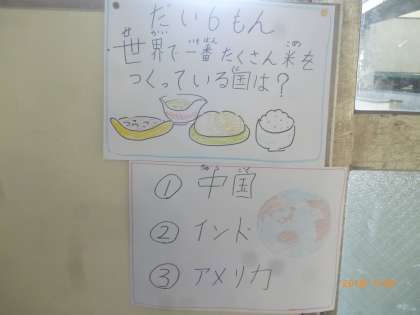 だい6もん
世界で一番たくさん米を
つくっている国は?
① 中国
② インド
③ アメリカ